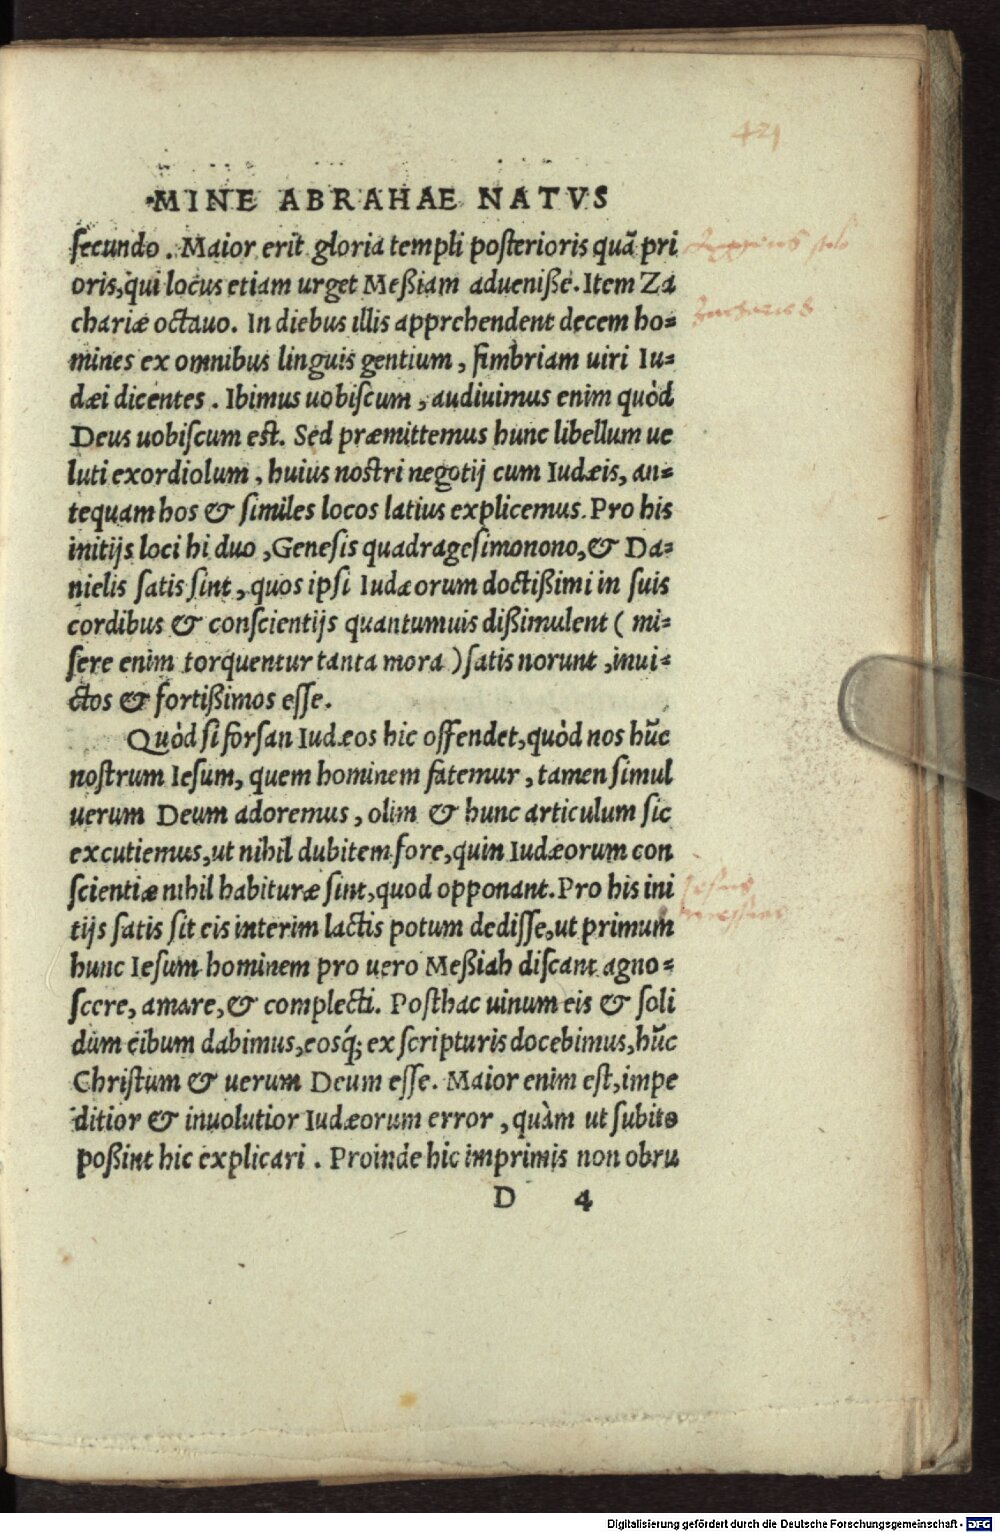 421
MINE ABRAHAE NATVS
secundo. Maior erit gloria templi posterioris quā pri
oris, qui locus etiam urget Meßiam adueniße. Item Za
chariæ octauo. In diebus illis apprehendent decem ho=
mines ex omnibus linguis gentium, fimbriam uiri Iu=
dæi dicentes. Ibimus uobiscum, audiuimus enim quòd
Deus uobiscum est. Sed præmittemus hunc libellum ue
luti exordiolum, huius nostri negotij cum Iudæis, an=
tequam hos & similes locos latius explicemus. Pro his
initijs loci hi duo, Genesis quadragesimonono, & Da=
nielis satis sint, quos ipsi Iudæorum doctißimi in suis
cordibus & conscientijs quantumuis dißimulent ( mi=
sere enim torquentur tanta mora ) satis norunt, inui=
ctos & fortißimos esse.
Quòd si forsan Iudæos hic offendet, quòd nos hūc
nostrum Iesum, quem hominem fatemur, tamen simul
uerum Deum adoremus, olim & hunc articulum sic
excutiemus, ut nihil dubitem fore, quin Iudæorum con
scientiæ nihil habituræ sint, quod opponant. Pro his ini
tijs satis sit eis interim lactis potum dedisse, ut primum
hunc Iesum hominem pro uero Meßiah discant agno=
scere, amare, & complecti. Posthac uinum eis & soli
dum cibum dabimus, eosq́; ex scripturis docebimus, hūc
Christum & uerum Deum esse. Maior enim est, impe
ditior & inuolutior Iudæorum error, quàm ut subito
poßint hic explicari. Proinde hic imprimis non obru
D 4
Digitalisierung gefördert durch die Deutsche Forschungsgemeinschaft - DFG